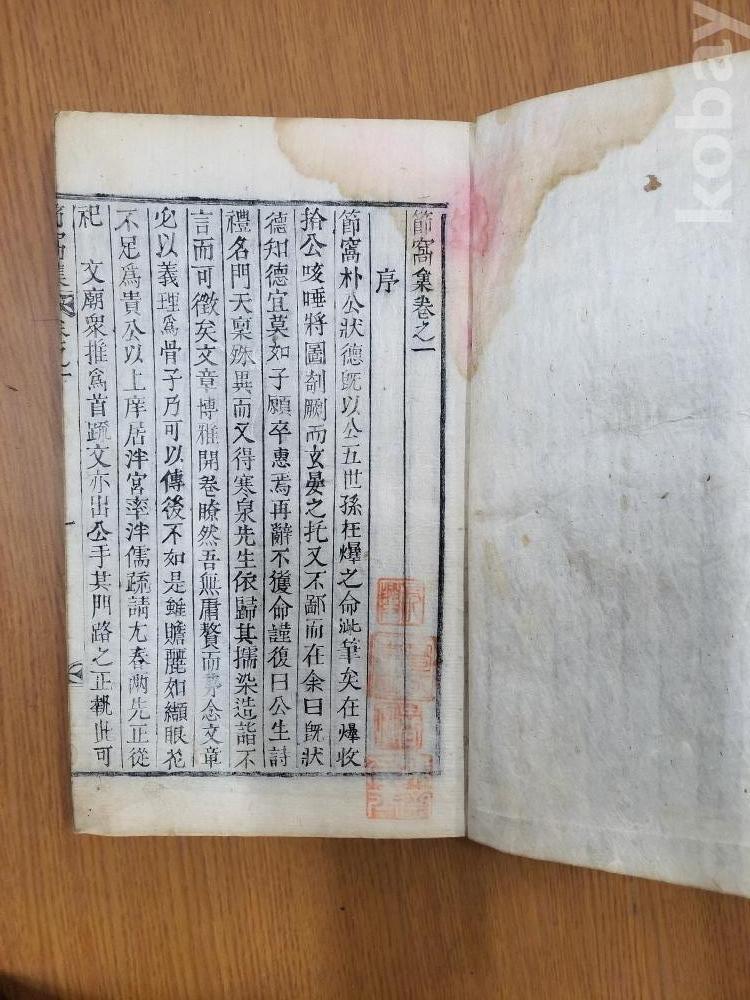 節窩集卷之一
序
節窩朴公狀德旣以公五世孫在爗之命泚筆矣在爗收
拾公咳唾將圖剞劂而玄晏之托又不鄙而在余曰旣狀
德知德宜莫如子願卒惠焉再辭不獲命謹復曰公生詩
禮名門天稟殊異而又得寒泉先生依歸其擩染造詣不
言而可徵矣文章博雅開卷瞭然吾無庸贅而第念文章
必以義理爲骨子乃可以傳後不如是雖贍麗如纈眼花
不足爲貴公以上庠居泮宮率泮儒疏請尤春兩先正從
祀 文廟衆推爲首疏文亦出公手其門路之正執此可
kobay